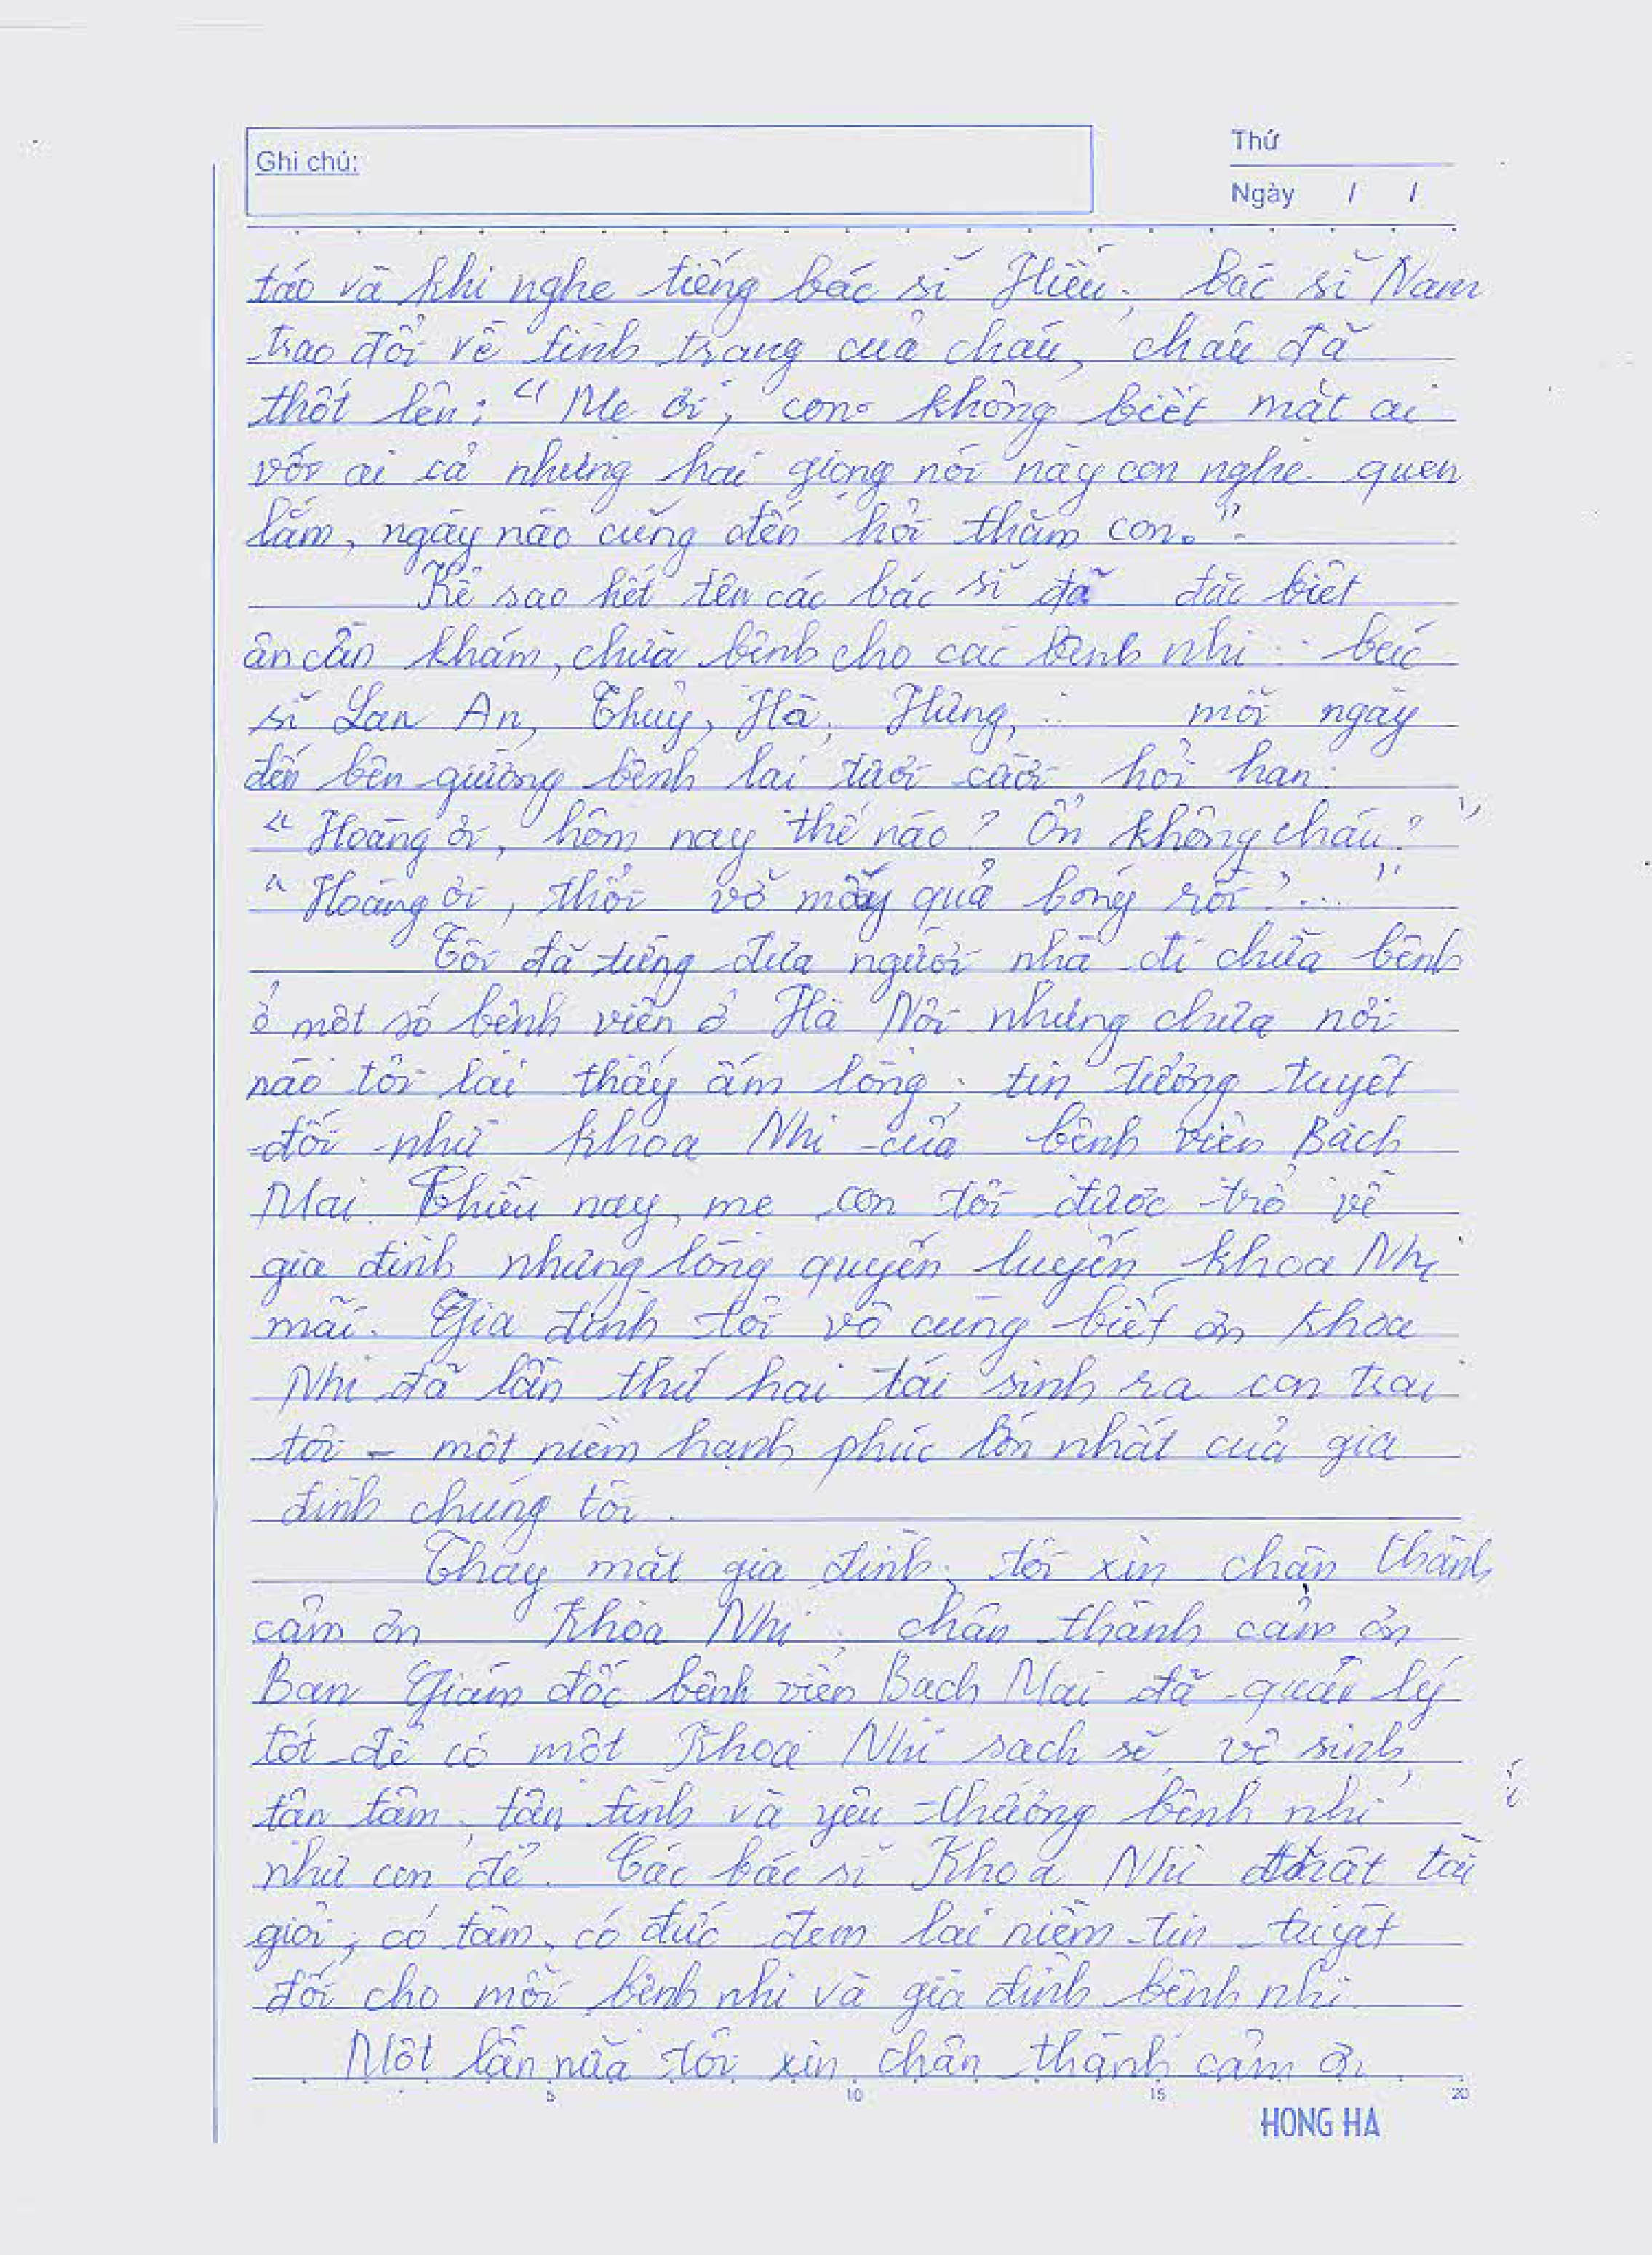 Ghi chú:
Thứ
Ngày / /
táo và khi nghe tiếng bác sĩ Hiếu, bác sĩ Nam
trao đổi về tình trạng của cháu, cháu đã
thốt lên: "Mẹ ơi, con không biết mặt ai
với ai cả nhưng hai giọng nói này con nghe quen
lắm, ngày nào cũng đến hỏi thăm con."
Kể sao hết tên các bác sĩ đã đặc biệt
ân cần khám, chữa bệnh cho các bệnh nhi: bác
sĩ Lan An, Thuỷ, Hà, Hùng, ... mỗi ngày
đến bên giường bệnh lại tươi cười hỏi han:
"Hoàng ơi, hôm nay thế nào? Ổn không cháu?"
"Hoàng ơi, thổi vỡ mấy quả bóng rồi?..."
Tôi đã từng đưa người nhà đi chữa bệnh
ở một số bệnh viện ở Hà Nội nhưng chưa nơi
nào tôi lại thấy ấm lòng, tin tưởng tuyệt
đối như khoa Nhi của bệnh viện Bạch
Mai. Chiều nay, mẹ con tôi được trở về
gia đình nhưng lòng quyến luyến khoa Nhi
mãi. Gia đình tôi vô cùng biết ơn khoa
Nhi đã lần thứ hai tái sinh ra con trai
tôi - một niềm hạnh phúc lớn nhất của gia
đình chúng tôi.
Thay mặt gia đình, tôi xin chân thành
cảm ơn Khoa Nhi, chân thành cảm ơn
Ban Giám đốc bệnh viện Bạch Mai đã quản lý
tốt để có một Khoa Nhi sạch sẽ, vệ sinh,
tận tâm, tận tình và yêu thương bệnh nhi
như con đẻ. Các bác sĩ Khoa Nhi thật tài
giỏi, có tâm, có đức đem lại niềm tin tuyệt
đối cho mỗi bệnh nhi và gia đình bệnh nhi.
Một lần nữa tôi xin chân thành cảm ơn
5 10 15 20
HONG HA